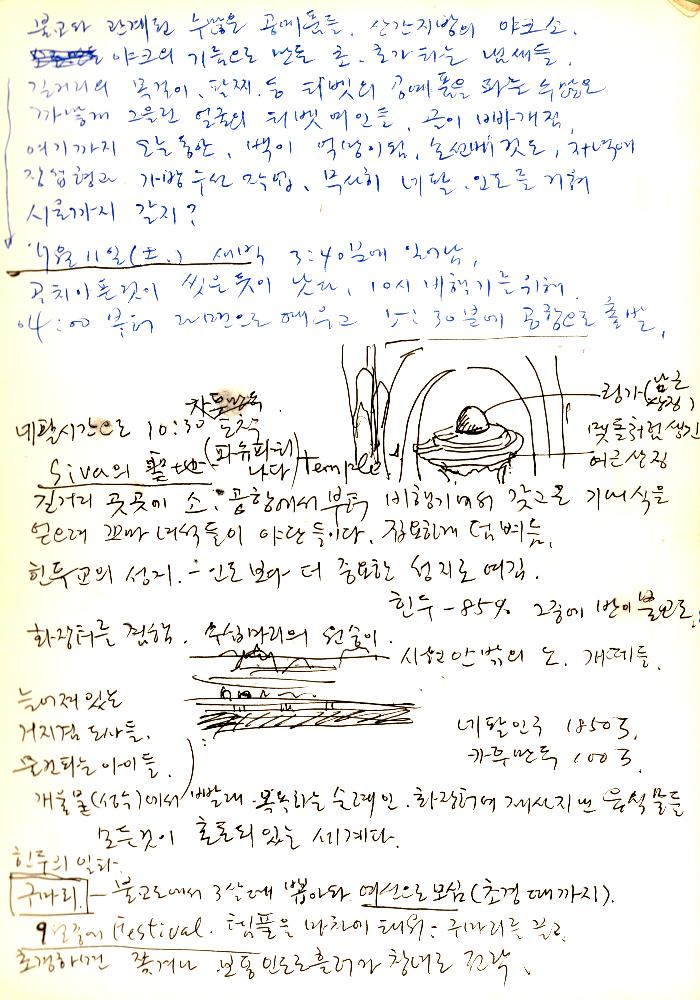 불교와 관계된 수많은 공예품들. 산간지방의 야크소.
야크의 기름으로 만든 초. 초가 타는 냄새들.
길거리의 목걸이, 팔찌 등 티벳의 공예품을 파는 수많은
까맣게 그을린 얼굴의 티벳 여인들. 골이 빠개짐,
여기까지 오는 동안, 백이 엉망이됨, 노선배 것도, 저녁에
장 형과 가방 수선 작업, 무사히 네팔, 인도를 거쳐
서울까지 갈지?
9월 11일(土.) 새벽 3:40분에 일어남,
골치아픈것이 씻은듯이 낫다, 10시 비행기를 위해
04:00 부터 라면으로 때우고 5:30분에 공항으로 출발,
네팔시간으로 10:30 도착
링가(남근상징)
맷돌처럼 생긴
여근상징
Siva의 聖地 (파슈파티나다) temple
길거리 곳곳이 소. 공항에서부터 비행기에서 갖고온 기내식을
얻으려 꼬마 녀석들이 야단들이다. 집요하게 덤벼듬,
힌두교의 성지. - 인도보다 더 중요한 성지로 여김.
힌두-85% 그중에 반이 불교도,
화장터를 경험. 수십마리의 원숭이.
사원안밖의 소. 개떼들.
늘어져있는
거지겸 도사들.
물건파는 아이들.
네팔인구 1850万,
카투만두 100万,
개울물(성수)에서 빨래 목욕하는 순례인. 화장터에 제사지낸 음식물들
모든것이 혼돈되있는 세계다.
힌두의 일파
쿠마리. - 불교도에서 3살때 뽑아와 여신으로모심(초경 때까지).
9월중에 Festival. 템플을 마차에 태워 쿠마리를 끌고.
초경하면 쫓겨나 보통인도로 흘러가 창녀로 전락.